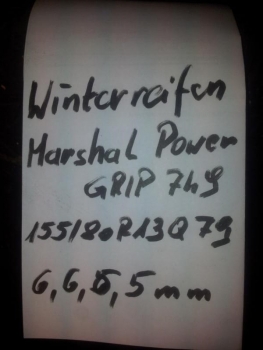 Winterreifen
Marshal Power
GRIP 749
155/80R13Q79
6,6,6,5mm